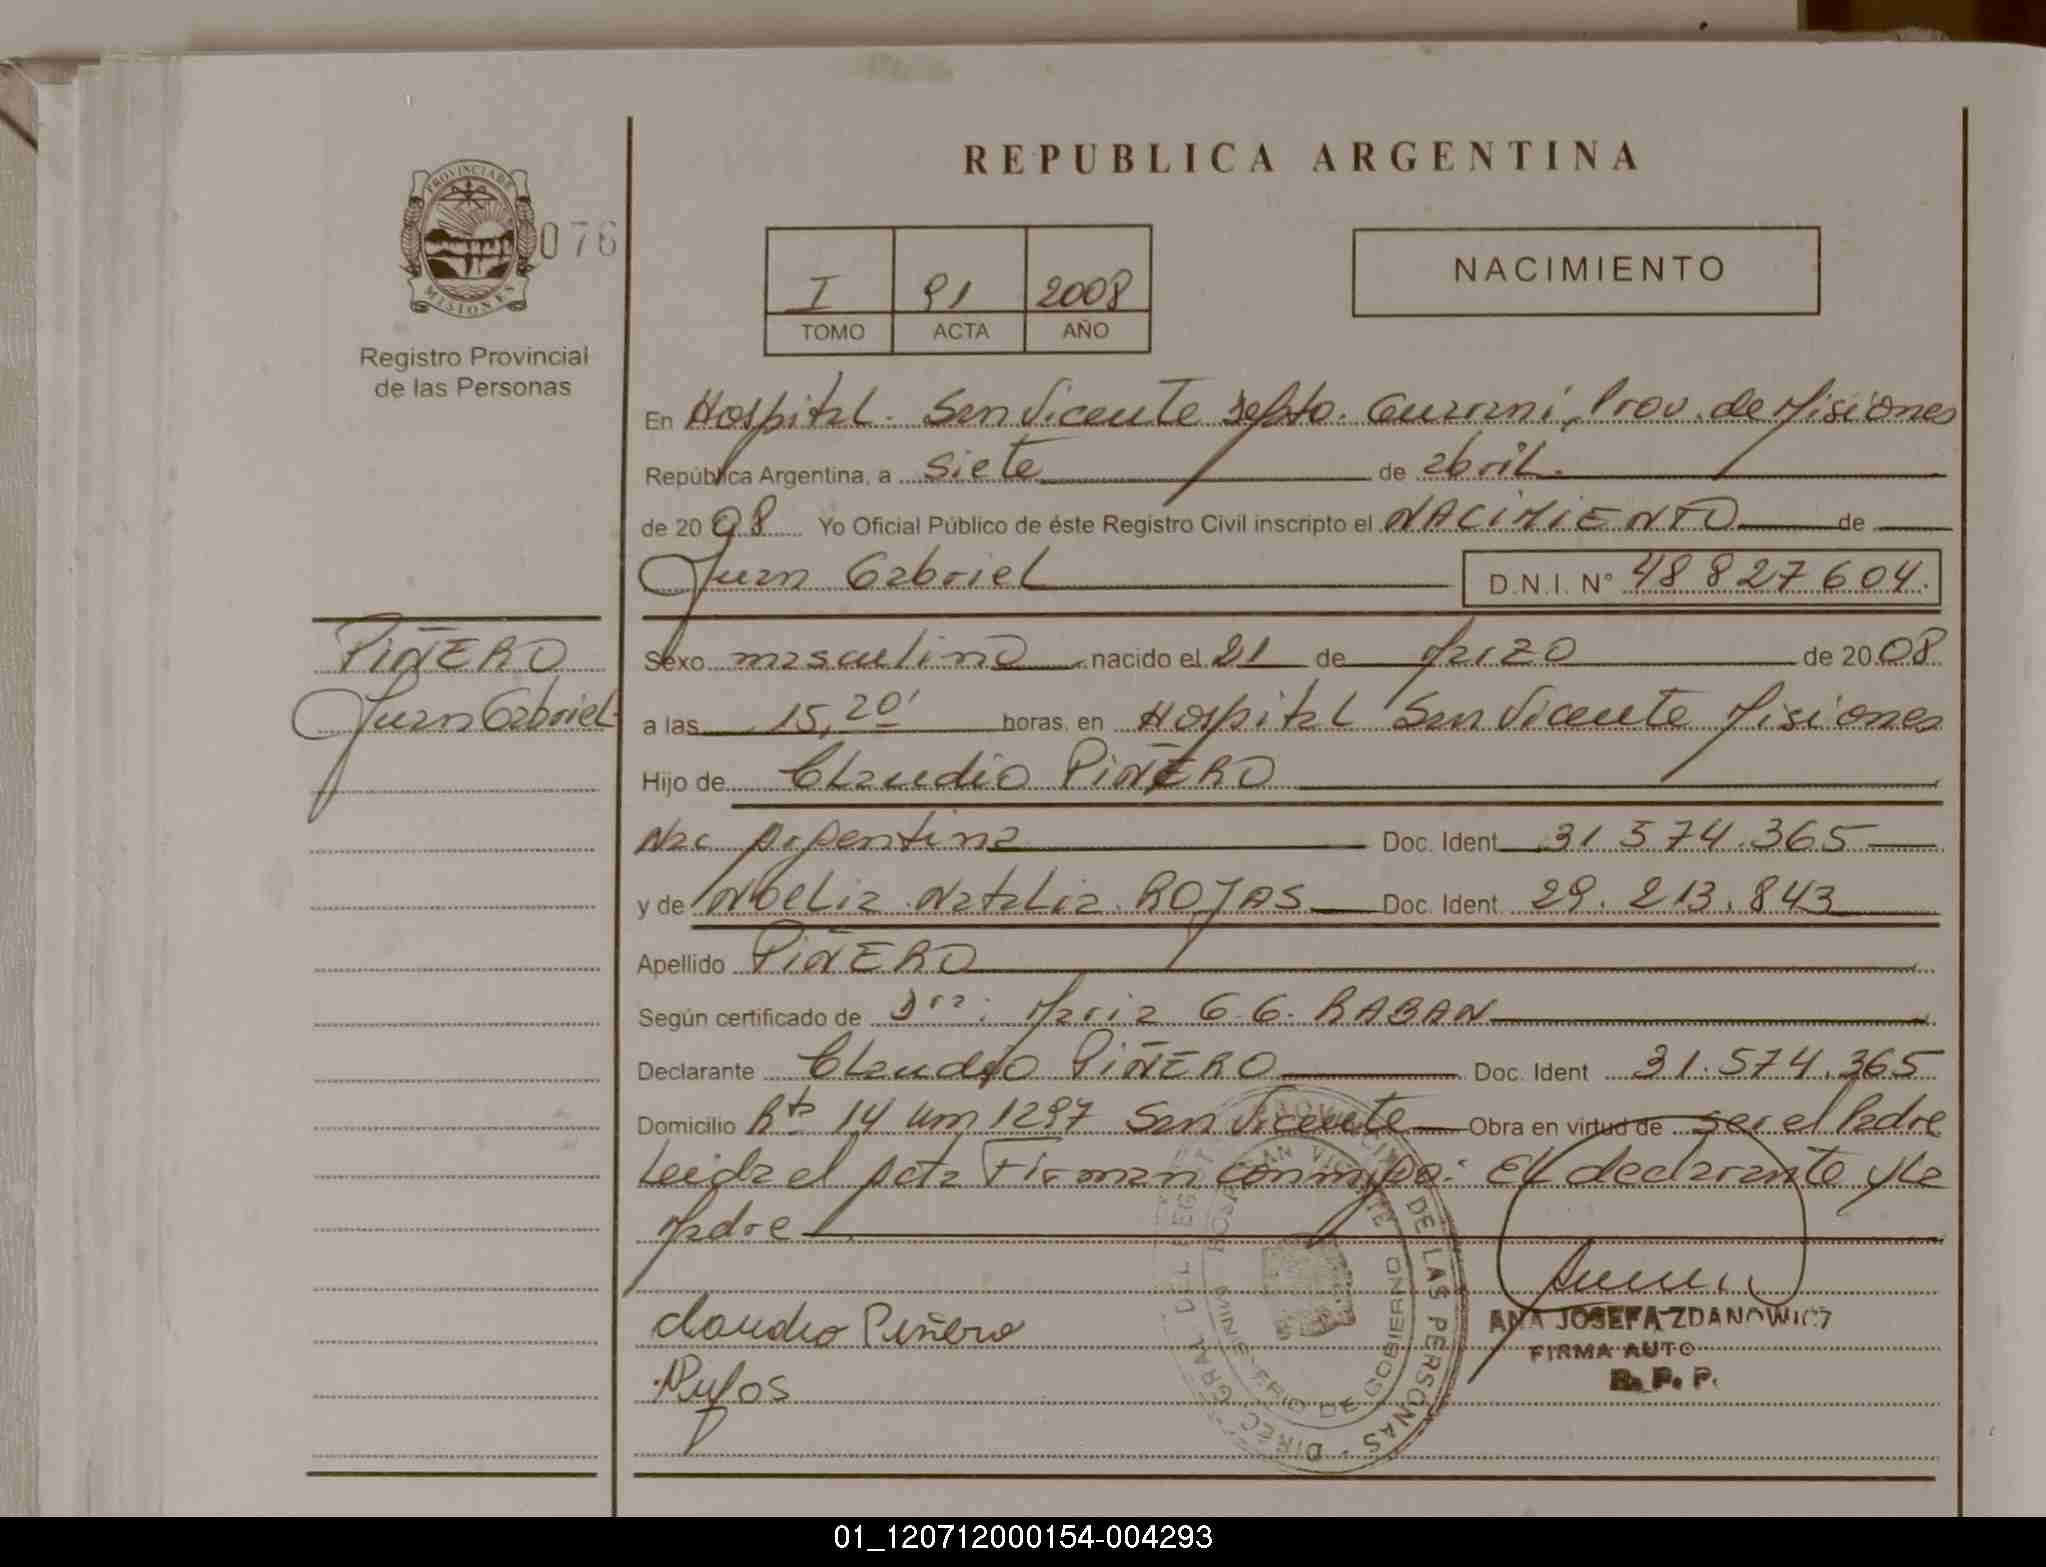 REPUBLICA ARGENTINA
PROVINCIA DE
MISIONES
076
Registro Provincial
de las Personas
I 91 2008
TOMO ACTA AÑO
NACIMIENTO
En Hospital - San Vicente Depto. Guarani, Prov. de Misiones
República Argentina, a siete de abril.
de 2008 Yo Oficial Público de éste Registro Civil inscripto el NACIMIENTO de
Juan Gabriel D.N.I. N° 48827604.
PIÑERO
Juan Gabriel
Sexo masculino nacido el 21 de Marzo de 2008
a las 15,20' horas, en Hospital San Vicente Misiones
Hijo de Claudio PIÑERO
Nac Argentina Doc. Ident 31.574.365
y de Noelia Natalia ROJAS Doc. Ident 29.213.843
Apellido PIÑERO
Según certificado de Dra: Maria G.G. RABAN
Declarante Claudio PIÑERO Doc. Ident 31.574.365
Domicilio Rta 14 km 1297 San Vicente Obra en virtud de ser el Padre
Leida el Acta Firman conmigo: El declarante y la
Madre
Claudio Piñero
ANA JOSEFA ZDANOWICZ
FIRMA AUTO
R. P. P.
DIREC GRAL DEL REGIST PROVINCIAL DE LAS PERSONAS
HOSP SAN VICENTE
MINISTERIO DE GOBIERNO
01_120712000154-004293